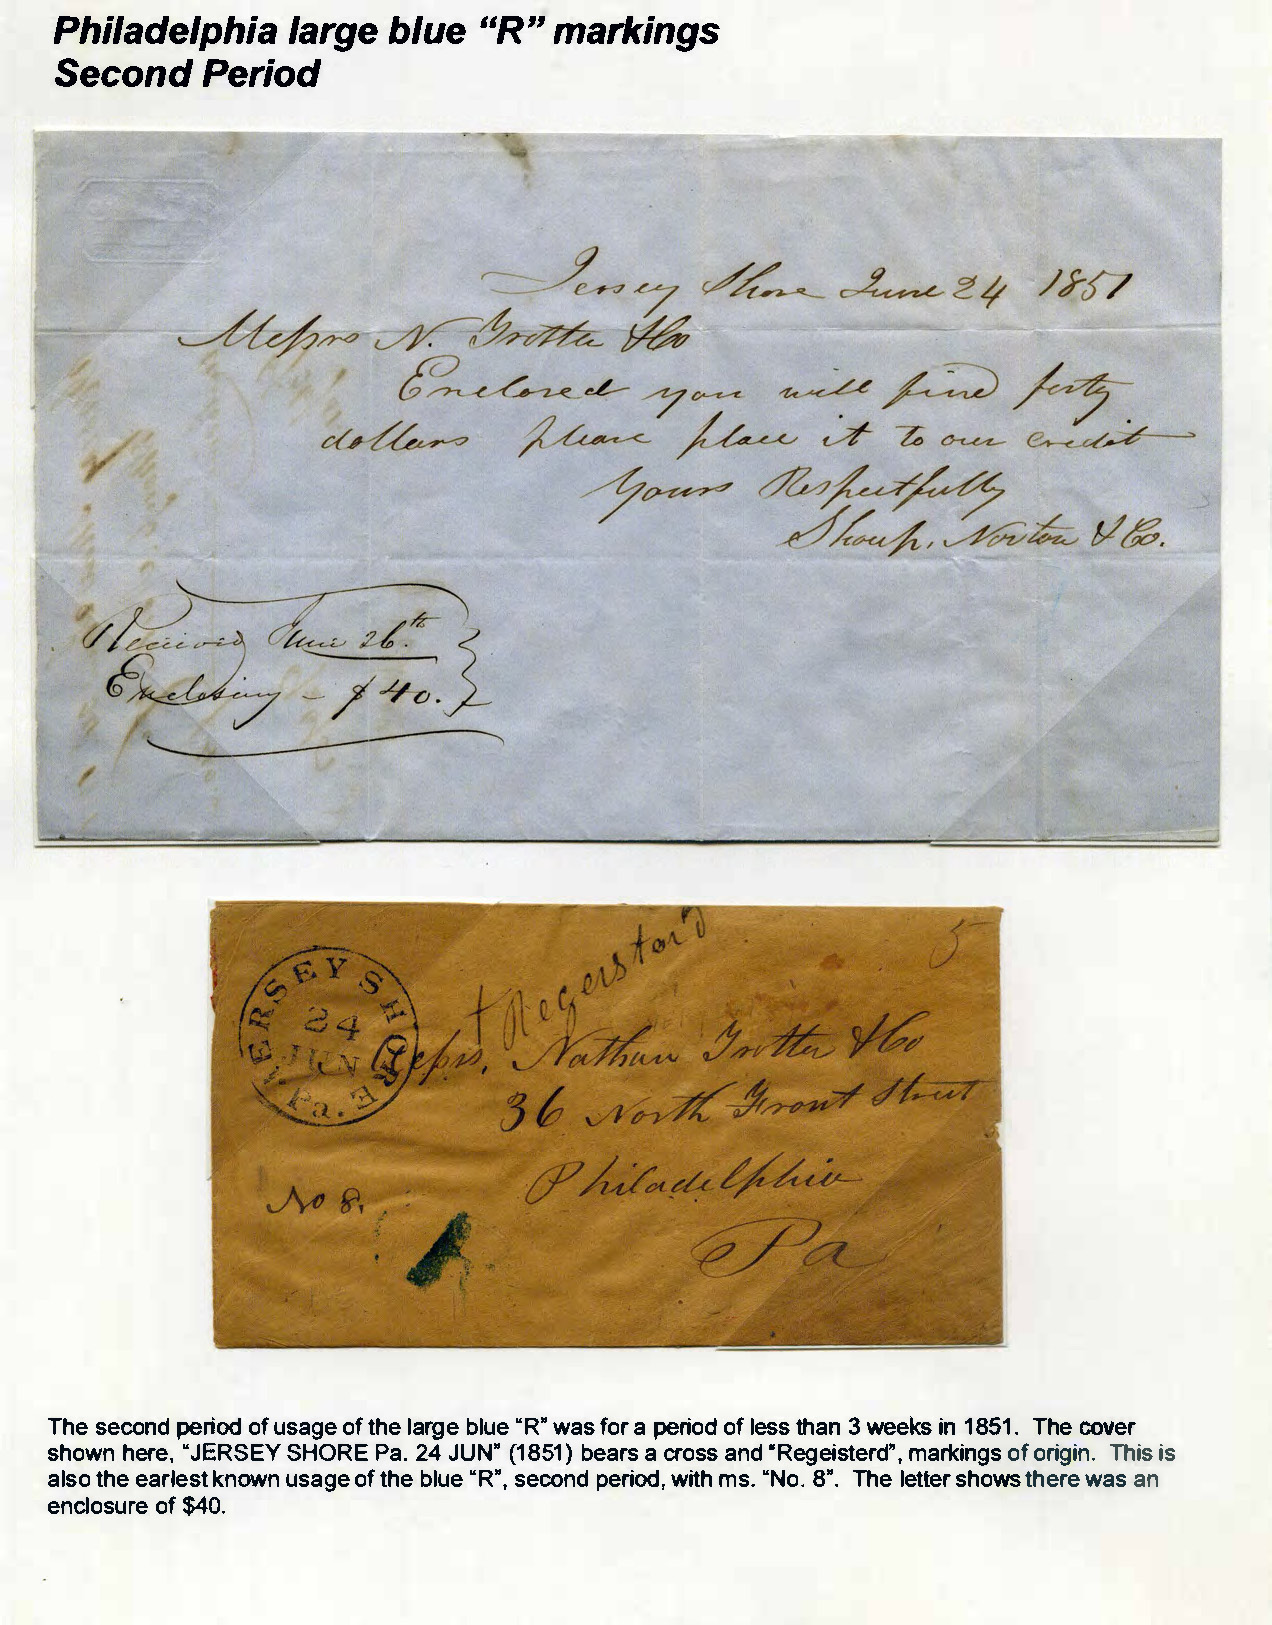 Philadelphia large blue “R” markings
Second Period
Jersey Shore June 24 1851
Messrs N. Trotter & Co
Enclosed you will find forty
dollars please place it to our credit
Yours Respectfully
Shoup, Norton & Co.
Received June 26th
Enclosing - $40.
JERSEY SHORE Pa.
24
JUN
+ Regeistard
5
Messrs, Nathan Trotter & Co
36 North Front Street
Philadelphia
Pa
No 8.
The second period of usage of the large blue “R” was for a period of less than 3 weeks in 1851. The cover
shown here, “JERSEY SHORE Pa. 24 JUN” (1851) bears a cross and “Regeisterd”, markings of origin. This is
also the earlest known usage of the blue “R”, second period, with ms. “No. 8”. The letter shows there was an
enclosure of $40.